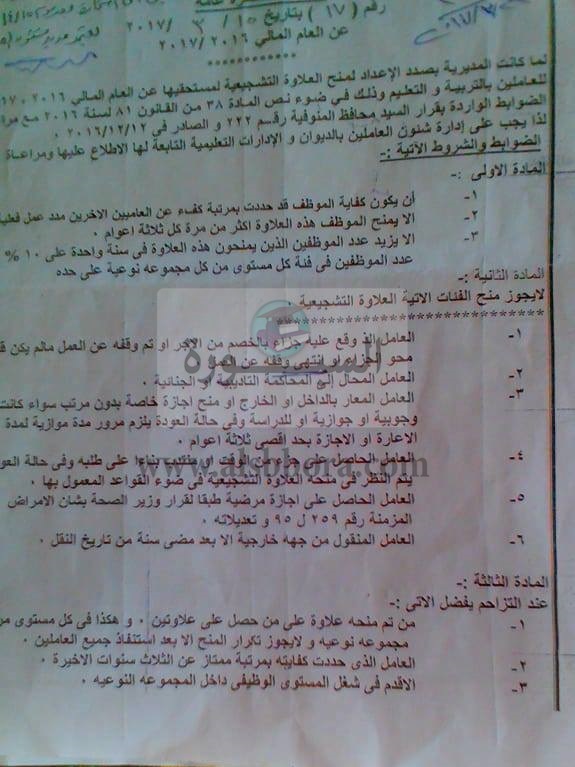 رقم ( ١٧ ) بتاريخ ١٥ / ٣ / ٢٠١٧
عن العام المالي ٢٠١٦ / ٢٠١٧
************
لما كانت المديرية بصدد الإعداد لمنح العلاوة التشجيعية لمستحقيها عن العام المالي ٢٠١٦ ، ٠١٧
للعاملين بالتربية و التعليم وذلك في ضوء نص المادة ٣٨ من القانون ٨١ لسنة ٢٠١٦ مع
الضوابط الواردة بقرار السيد محافظ المنوفية رقم ٢٢٢ و الصادر في ٢٠١٦/١٢/١٢ .
لذا يجب على إدارة شئون العاملين بالديوان و الإدارات التعليمية التابعة لها الاطلاع عليها ومراعاة
الضوابط والشروط الآتية :-
المادة الاولى :-
١- أن يكون كفاية الموظف قد حددت بمرتبة كفء عن العاميين الاخرين مدد عمل فعلية
٢- الا يمنح الموظف هذه العلاوة اكثر من مرة كل ثلاثة اعوام .
٣- الا يزيد عدد الموظفين الذين يمنحون هذه العلاوة في سنة واحدة على ١٠ %
عدد الموظفين فى فئة كل مستوى من كل مجموعه نوعية على حده
المادة الثانية :-
لايجوز منح الفئات الاتية العلاوة التشجيعية .
********************************
١- العامل الذ وقع عليه جزاء بالخصم من الاجر او تم وقفه عن العمل مالم يكن
محو الجزاء او انتهى وقفه عن العمل
٢- العامل المحال إلى المحاكمة التاديبية او الجنائية .
٣- العامل المعار بالداخل او الخارج او منح اجازة خاصة بدون مرتب سواء كانت
وجوبية او جوازية او للدراسة وفى حالة العودة يلزم مرور مدة موازية لمدة
الاعارة او الاجازة بحد اقصى ثلاثة اعوام .
٤- العامل الحاصل على جزاء او بناءا على طلبه وفى حالة
يتم النظر فى منحه العلاوة التشجيعية فى ضوء القواعد المعمول بها .
٥- العامل الحاصل على اجازة مرضية طبقا لقرار وزير الصحة بشان الامراض
المزمنة رقم ٢٥٩ ل ٩٥ و تعديلاته .
٦- العامل المنقول من جهه خارجية الا بعد مضى سنة من تاريخ النقل .
المادة الثالثة :-
عند التزاحم يفضل الاتى :-
١- من تم منحه علاوة على من حصل على علاوتين . و هكذا فى كل مستوى
مجموعه نوعيه و لايجوز تكرار المنح الا بعد استنفاذ جميع العاملين .
٢- العامل الذى حددت كفايته بمرتبة ممتاز عن الثلاث سنوات الاخيرة .
٣- الاقدم فى شغل المستوى الوظيفى داخل المجموعه النوعيه .
السبورة
www.alsbbora.com